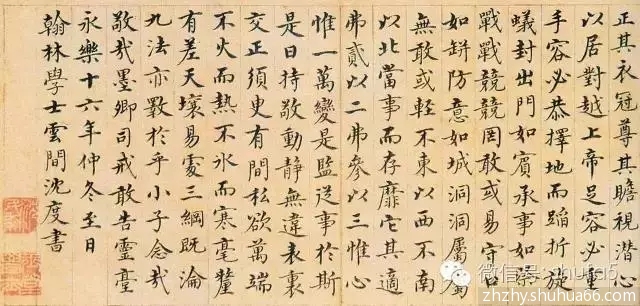 正其衣冠尊其瞻視潛心
以居對越上帝足容必重
手容必恭擇地而蹈折旋
蟻封出門如賓承事如祭
戰戰兢兢罔敢或易守口
如缾防意如城洞洞屬屬
無敢或輕不東以西不南
以北當事而存靡它其適
弗貳以二弗參以三惟心
惟一萬變是監從事於斯
是曰持敬動靜無違表裏
交正須臾有間私欲萬端
不火而熱不冰而寒毫釐
有差天壤易處三綱既淪
九法亦斁於乎小子念哉
敬哉墨卿司戒敢告靈臺
永樂十六年仲冬至日
翰林學士雲間沈度書
微信号:
zhzhy.shuhua66.com